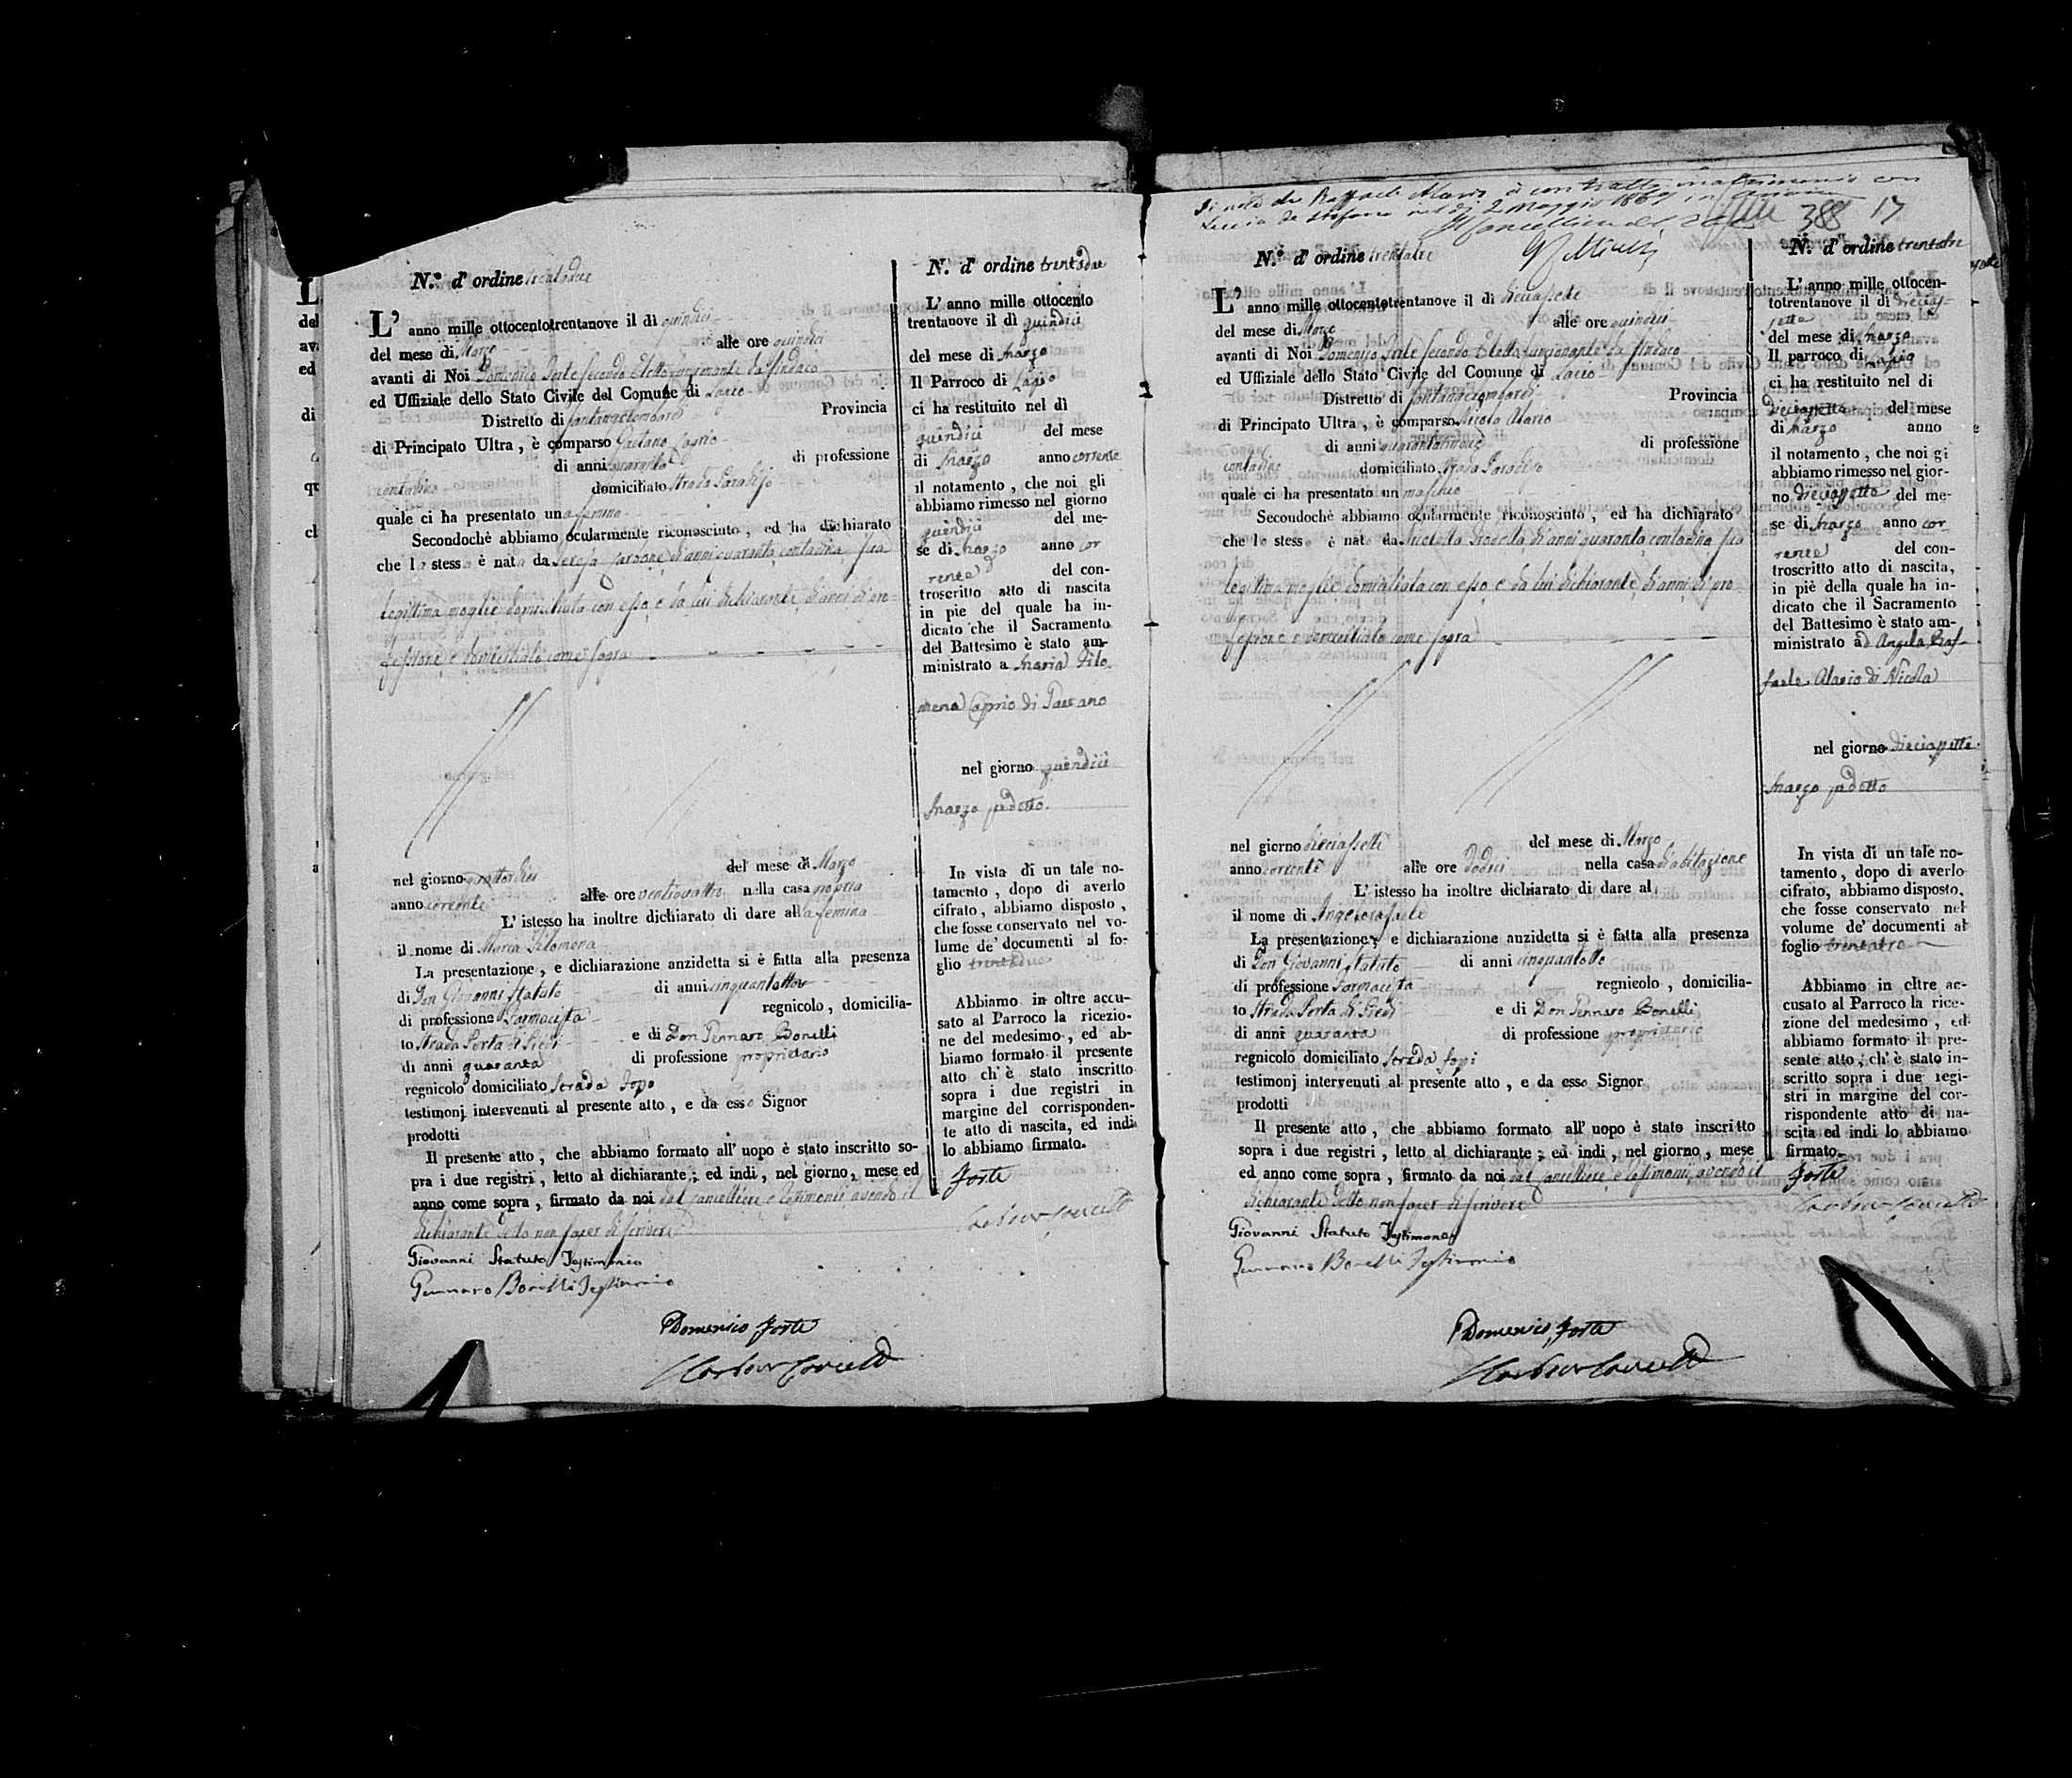 L'
del
ava
ed
di
qu
ch
N.° d'ordine trentadue
L' anno mille ottocentotrentanove il dì quindici
del mese di Marzo alle ore quindici
avanti di Noi Domenico Forte secondo Eletto funzionante da Sindaco
ed Uffiziale dello Stato Civile del Comune di Lacco
Distretto di Santangelombardi Provincia
di Principato Ultra, è comparso Gaetano Caprio
di anni quaranta di professione
contadino domiciliato Strada Paradiso
quale ci ha presentato una femina
Secondochè abbiamo ocularmente riconosciuto, ed ha dichiarato
che la stessa è nata da Teresa di anni quaranta contadina sua
legittima moglie domiciliata con esso, e da lui dichiarante di anni di pro-
fessione, e domiciliato come sopra
nel giorno quattordici del mese di Marzo
anno corrente alle ore ventiquattro nella casa propria
L' istesso ha inoltre dichiarato di dare alla femina
il nome di Maria Filomena
La presentazione, e dichiarazione anzidetta si è fatta alla presenza
di Don Giovanni Statuto di anni cinquantotto
di professione Farmacista regnicolo, domicilia-
to Strada Porta di Piedi e di Don Gennaro Bonelli
di anni quaranta di professione proprietario
regnicolo domiciliato Strada Sopo
testimonj intervenuti al presente atto, e da esso Signor
prodotti
Il presente atto, che abbiamo formato all' uopo è stato inscritto so-
pra i due registri, letto al dichiarante; ed indi, nel giorno, mese ed
anno come sopra, firmato da noi dal Cancelliere e testimonii avendo il
dichiarante detto non saper di scrivere
Giovanni Statuto Testimonio
Gennaro Bonelli Testimonio
Domenico Forte
N.° d' ordine trentadue
L' anno mille ottocento
trentanove il dì quindici
del mese di Marzo
Il Parroco di
ci ha restituito nel dì
quindici del mese
di Marzo anno corrente
il notamento, che noi gli
abbiamo rimesso nel giorno
quindici del me-
se di Marzo anno cor
rente del con-
troscritto atto di nascita
in piè del quale ha in-
dicato che il Sacramento
del Battesimo è stato am-
ministrato a Maria Filo
mena Caprio di Gaetano
nel giorno quindici
Marzo suddetto.
In vista di un tale no-
tamento, dopo di averlo
cifrato, abbiamo disposto,
che fosse conservato nel vo-
lume de' documenti al fo-
glio trentadue
Abbiamo in oltre accu-
sato al Parroco la ricezio-
ne del medesimo, ed ab-
biamo formato il presente
atto ch' è stato inscritto
sopra i due registri in
margine del corrisponden-
te atto di nascita, ed indi
lo abbiamo firmato.
Forte
Si nota che Raffaele Alario à contratto matrimonio con
Lucia de Stefano nel dì 2 Maggio 1867
388 17
N.° d' ordine trentatre
L' anno mille ottocentotrentanove il dì diciassette
del mese di Marzo alle ore quindici
avanti di Noi Domenico Forte secondo Eletto funzionante da Sindaco
ed Uffiziale dello Stato Civile del Comune di Lacco
Distretto di Santangelombardi Provincia
di Principato Ultra, è comparso Nicola Alario
di anni di professione
contadino domiciliato Strada Paradiso
quale ci ha presentato un maschio
Secondochè abbiamo ocularmente riconosciuto, ed ha dichiarato
che lo stesso è nato da di anni quaranta contadina sua
legittima moglie domiciliata con esso, e da lui dichiarante, di anni, di pro
fessione e domiciliato come sopra
nel giorno diciassette del mese di Marzo
anno corrente alle ore dodici nella casa d'abitazione
L' istesso ha inoltre dichiarato di dare al
il nome di Angeloraffaele
La presentazione, e dichiarazione anzidetta si è fatta alla presenza
di Don Giovanni Statuto di anni cinquantotto
di professione Farmacista regnicolo, domicilia-
to Strada Porta di Piedi e di Don Gennaro Bonelli
di anni quaranta di professione proprietario
regnicolo domiciliato Strada Sopi
testimonj intervenuti al presente atto, e da esso Signor
prodotti
Il presente atto, che abbiamo formato all' uopo è stato inscritto
sopra i due registri, letto al dichiarante; ed indi, nel giorno, mese
ed anno come sopra, firmato da noi dal Cancelliere, e testimonii, avendo il
dichiarante detto non saper di scrivere
Giovanni Statuto Testimonio
Gennaro Bonelli Testimonio
Domenico Forte
N.° d' ordine trentatre
L' anno mille ottocen-
totrentanove il dì diecias-
sette
del mese di Marzo
Il parroco di
ci ha restituito nel dì
dieciassette del mese
di Marzo anno
il notamento, che noi gi
abbiamo rimesso nel gior-
no dieciassette del me-
se di Marzo anno cor-
rente del con-
troscritto atto di nascita,
in piè della quale ha in-
dicato che il Sacramento
del Battesimo è stato am-
ministrato ad Angelo Raf-
faele Alario di Nicola
nel giorno dieciassette
Marzo suddetto
In vista di un tale no-
tamento, dopo di averlo
cifrato, abbiamo disposto,
che fosse conservato nel
volume de' documenti al
foglio trentatre
Abbiamo in oltre ac-
cusato al Parroco la rice-
zione del medesimo, ed
abbiamo formato il pre-
sente atto, ch' è stato in-
scritto sopra i due regi-
stri in margine del cor-
rispondente atto di na-
scita ed indi lo abbiamo
firmato.
Forte